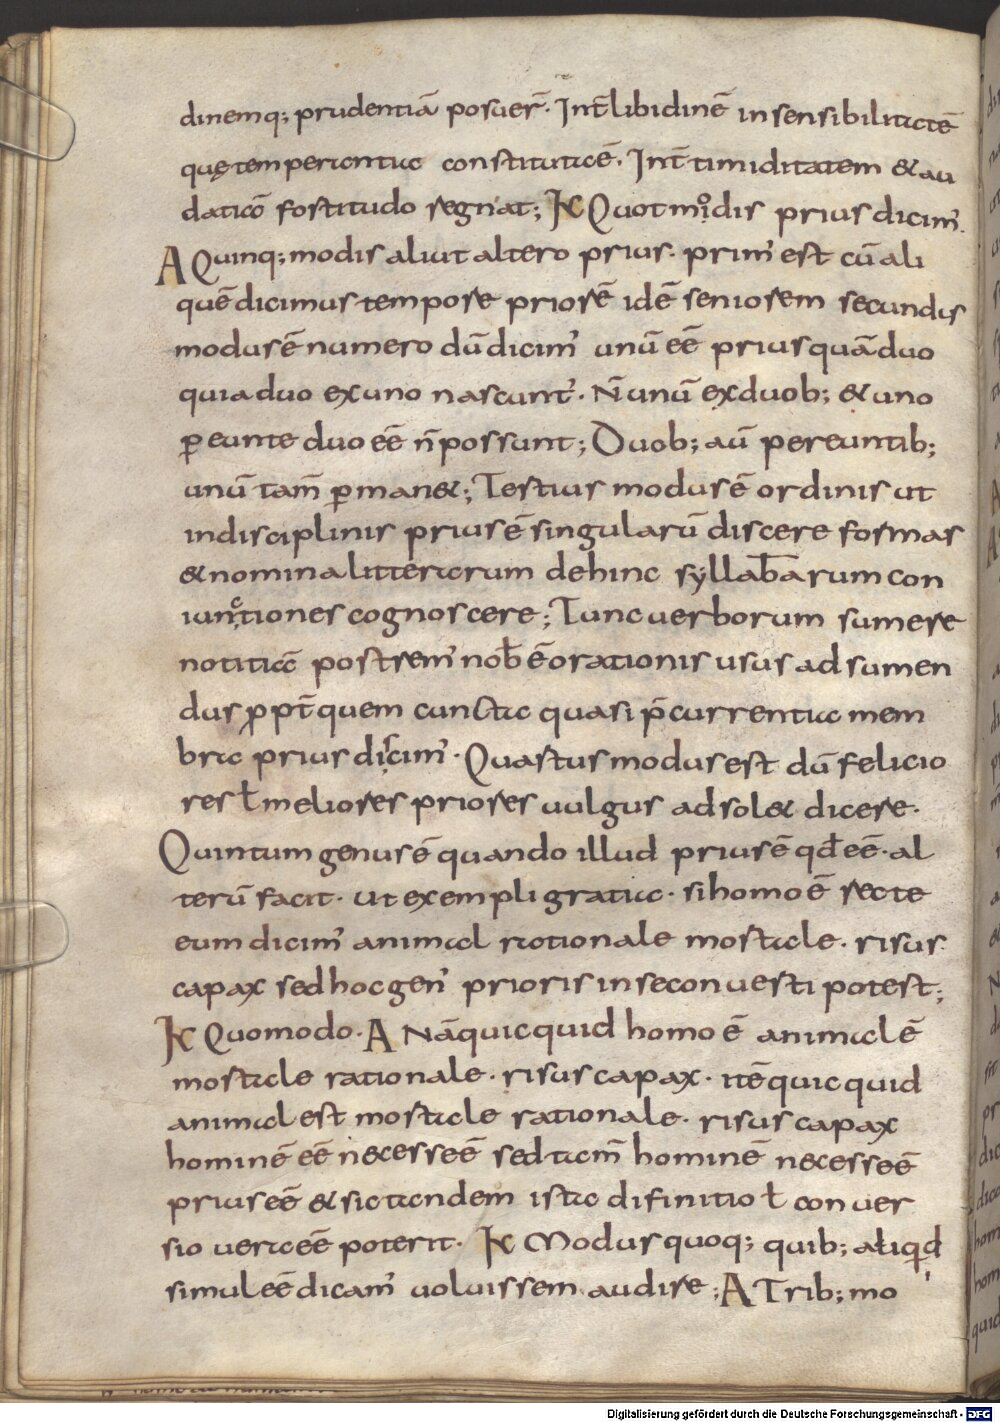 dinemq; prudentiā posuer̄. Int̄ libidinē insensibilitatē
quę temperantia constitutā ē. Int̄ timiditatem & au
datiā fortitudo regnat; K Quot modis prius dicim'.
A Quinq; modis aliut altero prius. prim' est cū ali
quē dicimus tempore priorē idē seniorem secundus
modus ē numero dū dicim' unū eē prius quā duo
quia duo ex uno nascunt'. N̄ unū ex duob; & uno
ꝑeunte duo eē n̄ possunt; Duob; aū pereuntib;
unū tam̄ ꝑman&; Tertius modus ē ordinis ut
indisciplinis prius ē singularū discere formas
& nomina litterarum dehinc syllabarum con
iunctiones cognoscere; Tunc uerborum sumere
notitiā postrem' nob̄ ē orationis usus adsumen
dus ꝓpt̄ quem cuncta quasi p̄currentia mem
bra prius discim'. Quartus modus est dū felicio
res ł meliores priores uulgus adsol& dicere.
Quintum genus ē quando illud prius ē qđ eē. al
terū facit. ut exempli gratia. si homo ē recte
eum dicim' animal rationale mortale. risus
capax sed hoc gen' prioris in se conuerti potest;
K Quomodo. A Nā quicquid homo ē animal ē
mortale rationale. risus capax. itē quicquid
animal est mortale rationale. risus capax
hominē eē n&cesse ē sed tam̄ hominē necesse ē
prius eē & sic tandem ista difinitio ł conuer
sio uera eē poterit. K Modus quoq; quib; aliqid
simul eē dicam' uoluissem audire; A Trib; mo